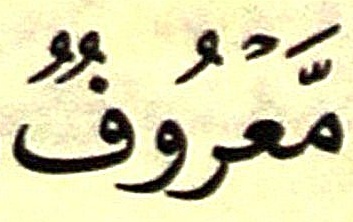 مَّعْرُوفٌ